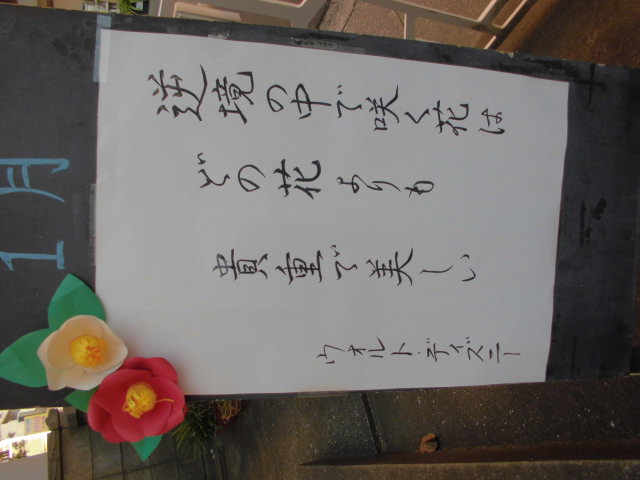 1月
逆境の中で咲く花は
どの花よりも
貴重で美しい
ウォルト・ディズニー